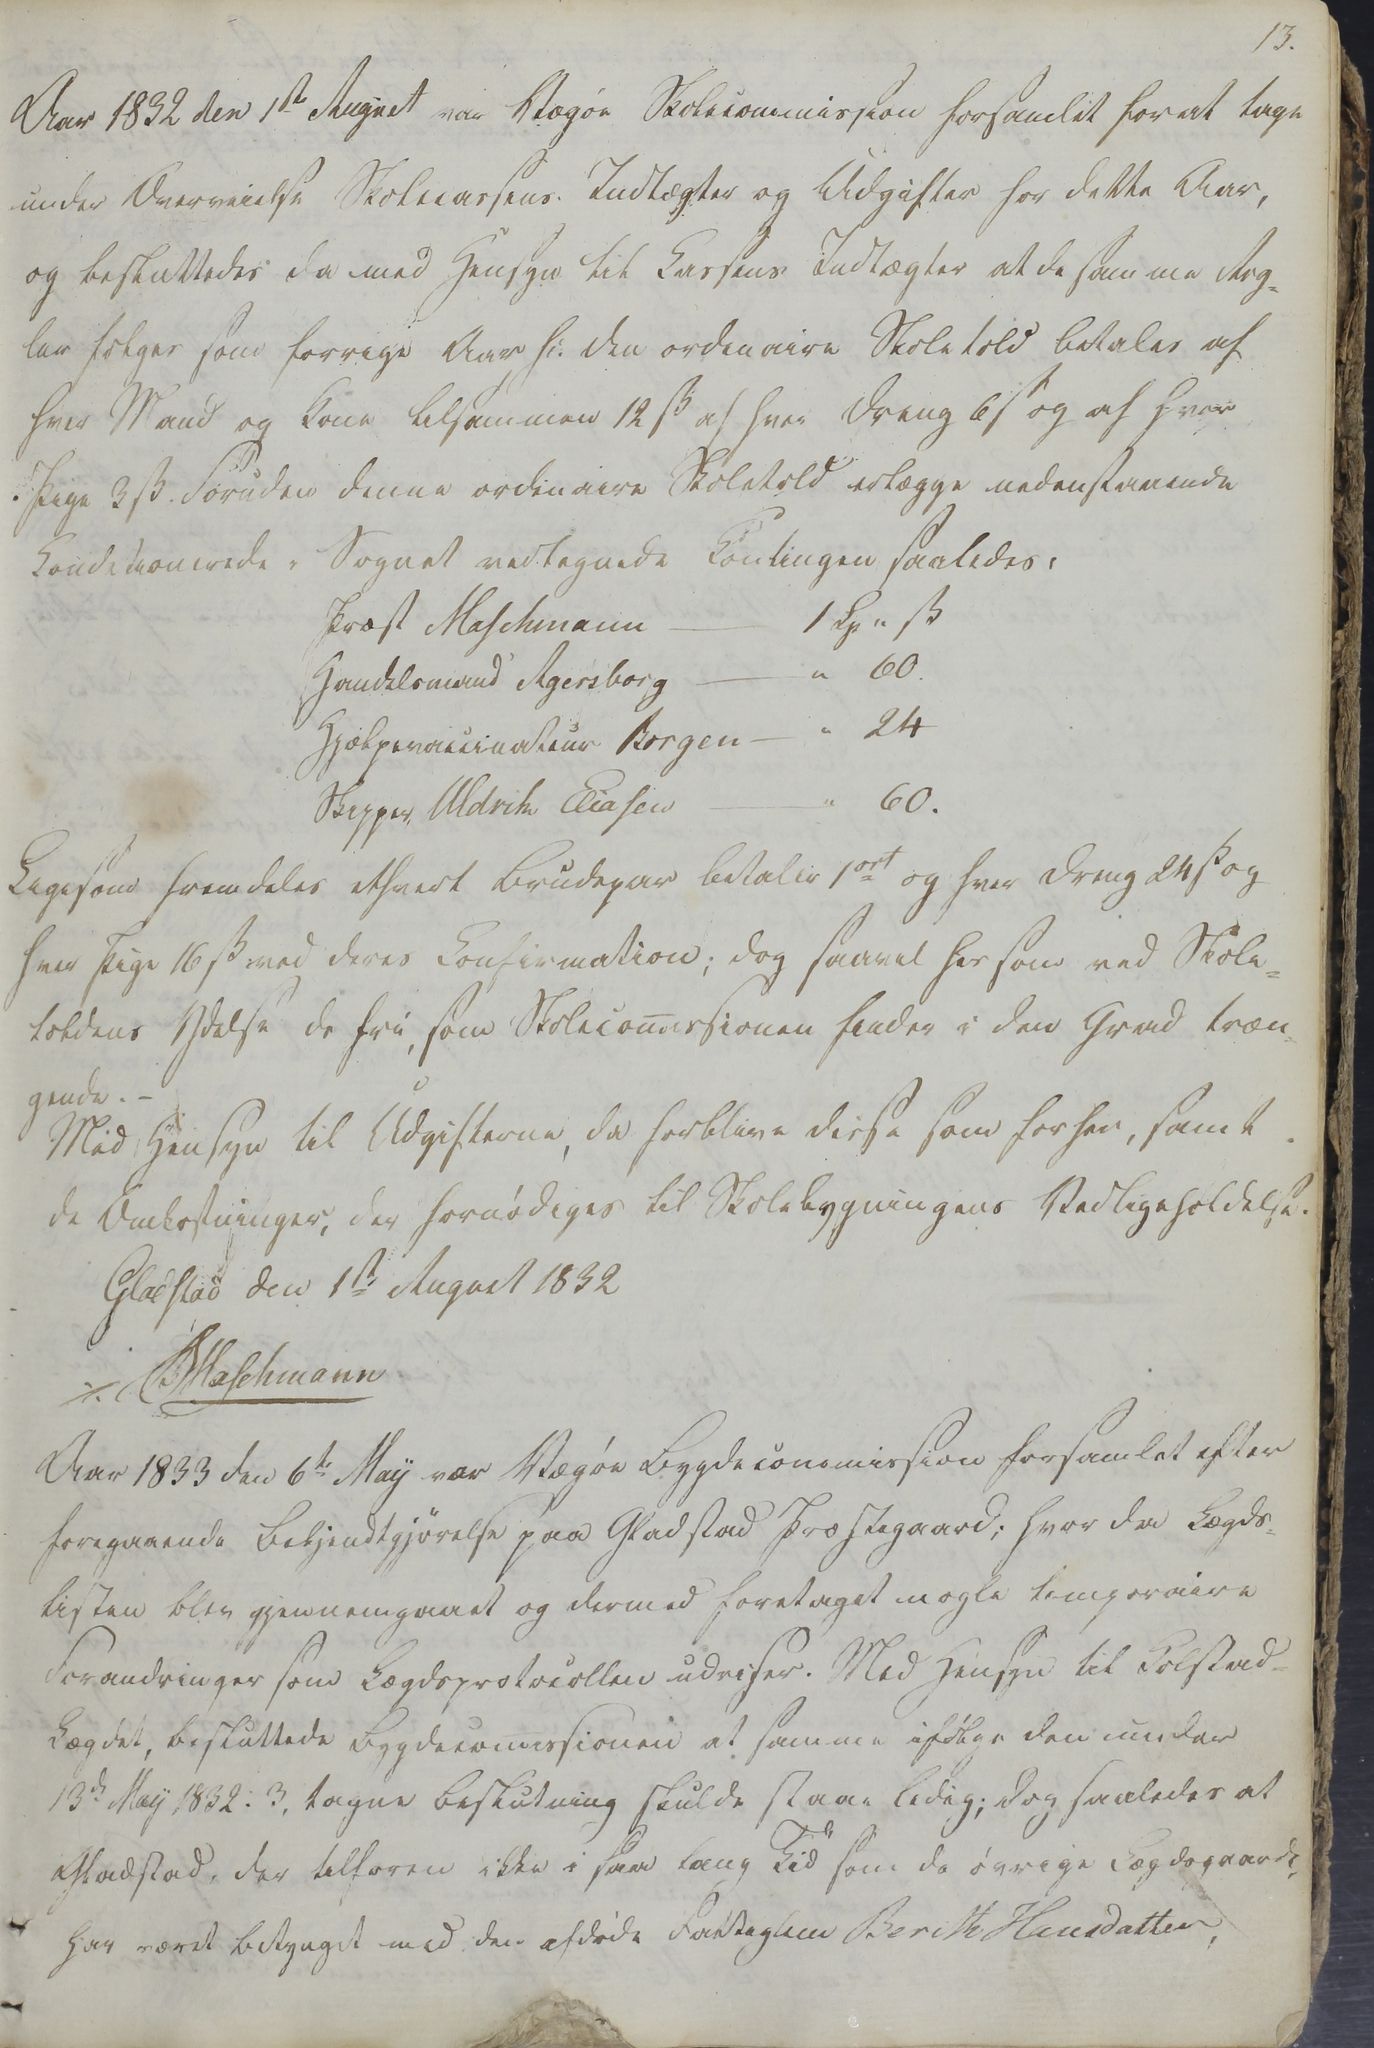 13.
Aar 1832 den 1ste August var Vægøe Skolecommission forsamlet for at tage
under Overveielse Skolecassens Indtægter og Udgifter for dette Aar,
og besluttedes da med Hensyn til Cassens Indtægter at de samme Reg-
ler følges som forrige Aar, h: den ordinaire Skoletold betales af
hver Mand og Kone tilsammen 12 ß af hver Dreng 6 ß og af hver
Pige 3 ß. Foruden denne ordinaire Skoletold erlægge nedenstaaende
Conditionerede i Sognet vedtegnede Contingen saaledes:
Præst Maschmann — 1 Sp " ß
Handelsmand Agersborg — " 60.
Hjælpevaccinateur Borgen — " 24
Skipper Uldrik Eliasen — " 60.
Ligesom fremdeles ethvert Brudepar betaler 1 ort og hver Dreng 24 ß og
hver Pige 16 ß ved deres Confirmation; dog saavel her som ved Skole-
toldens Ydelse de fri, som Skolecommissionen finder i den Grad træn-
gende. -
Med Hensyn til Udgifterne, da forblive disse som forhen, samt
de Omkostninger, der fornødiges til Skolebygningens Vedligeholdelse.
Gladstad den 1ste August 1832
Maschmann
Aar 1833 den 6te May var Vægøe Bygdecommission forsamlet efter
foregaaende Bekjendtgjørelse paa Gladstad Præstegaard; hvor da Lægds-
listen blev gjennemgaaet og dermed foretaget nogle temporaire
Forandringer som Lægdsprotocollen udviser. Med Hensyn til Kolstad-
Lægdet, besluttede Bygdecommissionen at samme ifølge den under
13de May 1832: 3, tagne Beslutning skulde staae ledig; dog saaledes at
Gladstad, der tilforen ikke i saa lang Tid som de øvrige Lægdsgaarde,
har været betynget med den afdøde Fattiglem Berith Hansdatter,